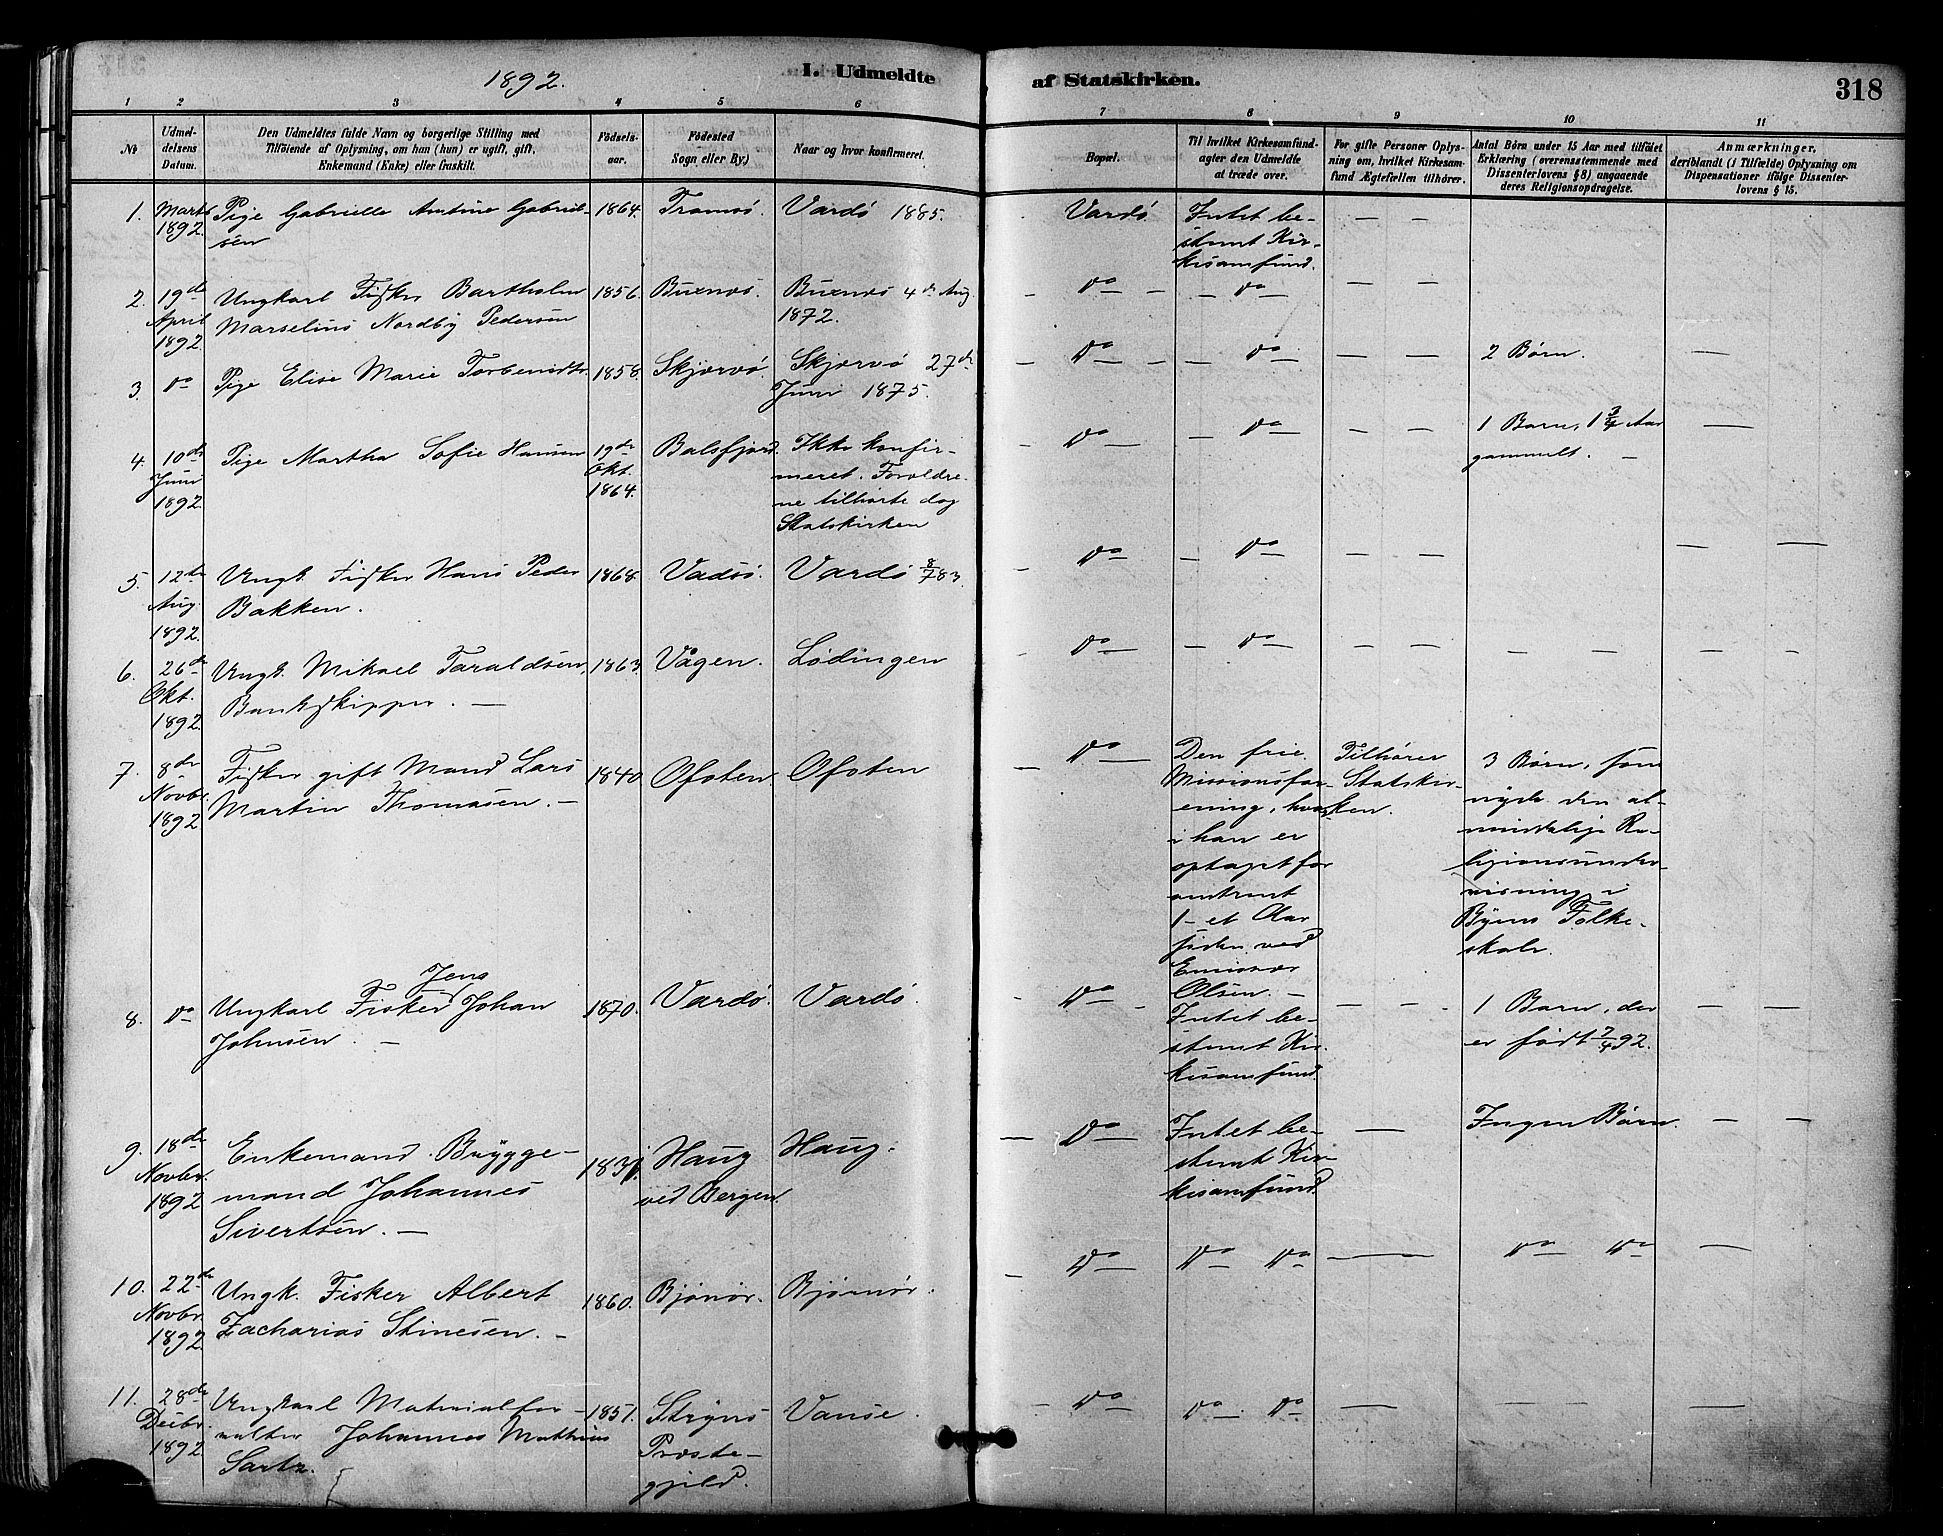 1892.
I. Udmeldte
af Statskirken.
318
1 2 3 4 5 6 7 8 9 10 11
No
Udmel-
delsens
Datum.
Den Udmeldtes fulde Navn og borgerlige Stilling med
Tilføiende af Oplysning, om han (hun) er ugift, gift,
Enkemand (Enke) eller fraskilt.
Fødsels-
aar.
Fødested
Sogn eller By.)
Naar og hvor konfirmeret.
Bopæl.
Til hvilket Kirkesamfund
agter den Udmeldte
at træde over.
For gifte Personer Oplys-
ning om, hvilket Kirkesam-
fund Ægtefællen tilhører.
Antal Børn under 15 Aar med tilføiet
Erklæring (overensstemmende med
Dissenterlovens § 8) angaaende
deres Religionsopdragelse.
Anmærkninger,
deriblandt (i Tilfælde) Oplysning om
Dispensationer ifølge Dissenter-
lovens § 15.
1.
Marts
1892.
Pige Gabrielle Antine Gabriel-
sen
1864.
Tromsö.
Vardö 1885.
Vardö
Intet be-
stemt Kir-
kesamfund.
— —
2.
19de
April
1892.
Ungkarl Fisker Bartholm
Marselius Nordby Pedersen
1856.
Buxnæs.
Buxnæs 4de Aug
1872.
— Do —
— Do —
— —
3.
Do
Pige Elise Marie Torbenidtr.
1858.
Skjærvö.
Skjærvö 27de
Juni 1875.
— Do —
— Do —
— —
2 Børn.
—
4.
10de
Juni
1892.
Pige Martha Sofie Hansen
19de
Okt.
1864.
Balsfjord.
Ikke konfir-
meret. Forældre-
ne tilhørte dog
Statskirken
— Do —
— Do —
— —
1 Barn, 1 3/4 Aar
gammelt. —
—
5.
12de
Aug.
1892.
Ungk. Fisker Hans Peder
Bakken.
1868.
Vadsö.
Vardö 8/7 83.
— Do —
— Do —
— —
— —
6.
26de
Okt.
1892.
Ungk. Mikael Taraldsen,
Bankskipper. —
1863.
Vågen.
Lödingen
— Do —
— Do —
— —
— —
— —
7.
8de
Novbr.
1892
Fisker gift Mand Lars
Martin Thomasen. —
1840
Ofoten.
Ofoten
— Do —
Den frie
Missionsfor-
ening, hvor-
i han er
optaget for
omtrent
1 - et Aar
siden ved
Emissær
Olsen. —
Tilhører
Statskir-
ken.
3 Børn, som
nyde den al-
mindelige Re-
ligionsunder-
visning i
Byens Folke-
skole.
8.
Do
Jens
Ungkarl Fisker Johan
Johnsen. —
1870.
Vardö.
Vardö.
— Do —
Intet be-
stemt Kir-
kesamfund.
— —
1 Barn, der
er født 2/4 92.
— —
9.
18de
Novbr.
1892
Enkemand. Brygge-
mand Johannes
Sivertsen. —
Haug
ved Bergen.
Haug.
— Do —
Intet be-
stemt Kir-
kesamfund.
—
Ingen Børn.
— —
10.
22de
Novbr.
1892
Ungk. Fisker Albert
Zacharias Stinesen. —
1860.
Bjönör.
Bjørnör.
— Do —
Do Do
—
Do Do
—
11.
28de
Decbr.
1892
Ungkarl Materialfor-
valter Johannes Mathias
Sartz.
1851.
Stryns
Præste-
gjeld.
Vanse.
— Do —
Do. Do
—
— —
—